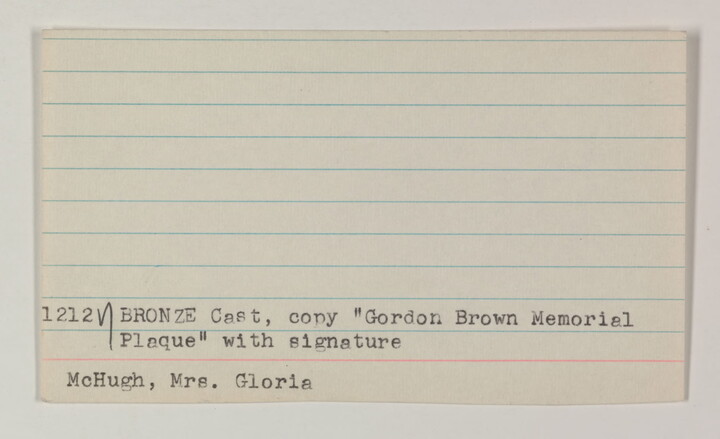 1212√ BRONZE Cast, copy "Gordon Brown Memorial
Plaque" with signature
McHugh, Mrs. Gloria